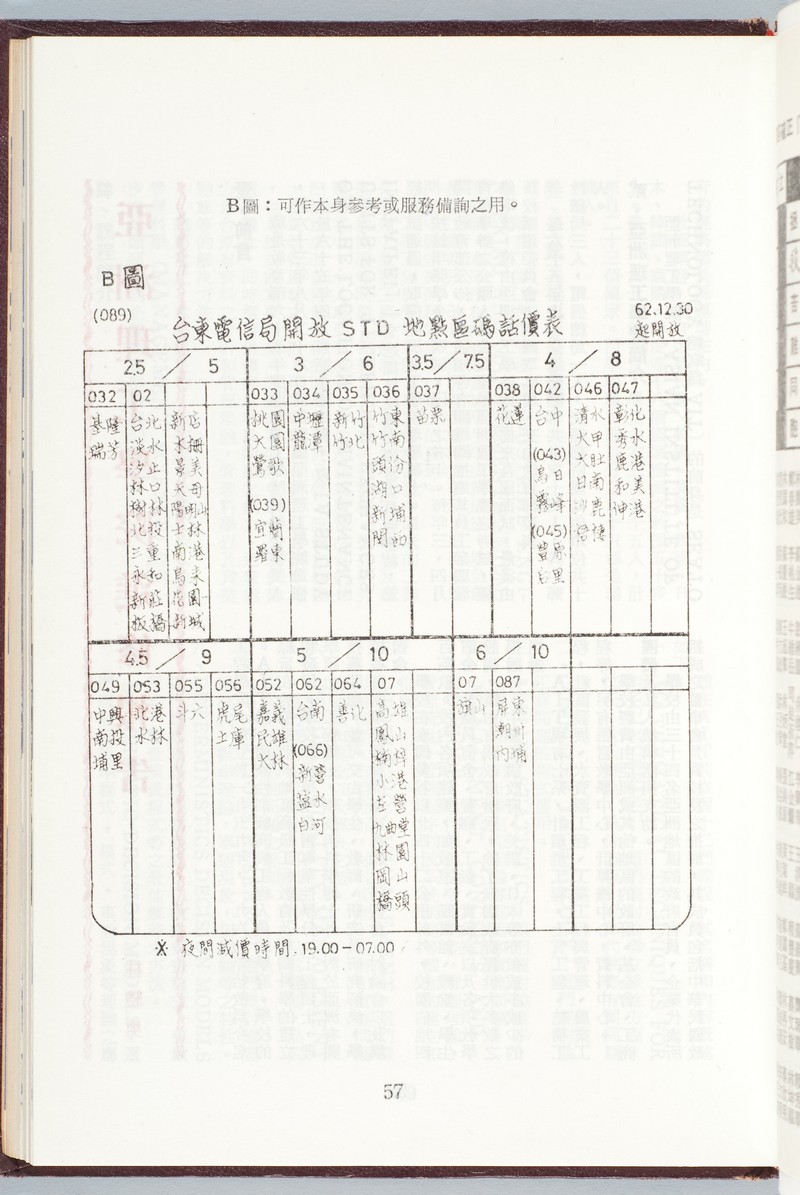 B圖：可作本身參考或服務備詢之用。
B圖
(089)
台東電信局開放 STD 地點區碼話價表
62.12.30
起開放
2.5／5
3／6
3.5／7.5
4／8
032
02
033
034
035
036
037
038
042
046
047
基隆
瑞芳
台北
淡水
汐止
林口
樹林
北投
三重
永和
新莊
板橋
新店
木柵
景美
天母
陽明山
士林
南港
烏來
花園
新城
桃園
大園
鶯歌
(039)
宜蘭
羅東
中壢
龍潭
新竹
竹北
竹東
竹南
頭份
湖口
新埔
關西
苗栗
花蓮
台中
(043)
烏日
霧峰
(045)
豐原
后里
清水
大甲
大肚
日南
沙鹿
梧棲
彰化
秀水
鹿港
和美
伸港
4.5／9
5／10
6／10
049
053
055
056
052
062
064
07
07
087
中興
南投
埔里
北港
水林
斗六
虎尾
土庫
嘉義
民雄
大林
台南
(066)
新營
鹽水
白河
善化
高雄
鳳山
楠梓
小港
左營
九曲堂
林園
岡山
橋頭
旗山
屏東
潮州
內埔
※ 夜間減價時間, 19.00－07.00
57